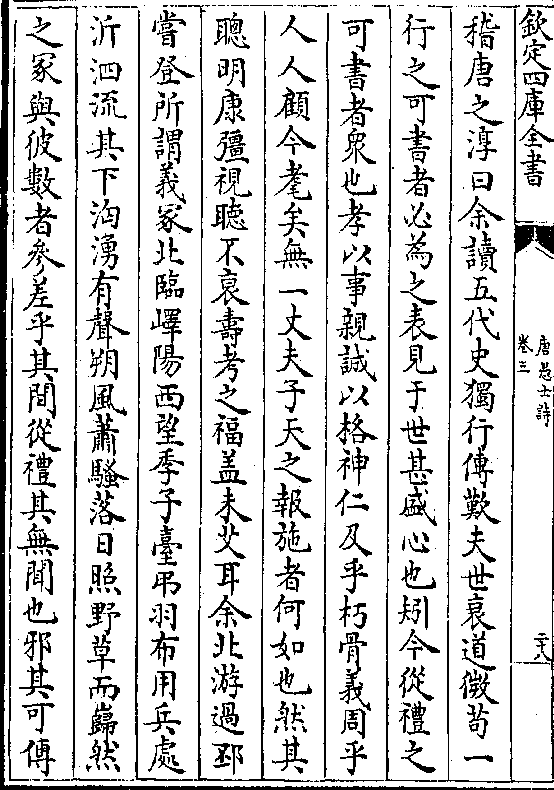 欽定四庫全書
唐愚士詩
卷三
二十八
稽唐之淳曰余讀五代史獨行傳歎夫世衰道微苟一
行之可書者必為之表見于世甚盛心也矧今從禮之
可書者衆也孝以事親誠以格神仁及乎朽骨義周乎
人人顧今耄矣無一丈夫子天之報施者何如也然其
聰明康彊視聽不衰壽考之福盖未艾耳余北游過邳
嘗登所謂義冢北臨嶧陽西望季子臺弔羽布用兵處
沂泗流其下洶湧有聲朔風蕭騷落日照野草而巋然
之冢與彼數者參差乎其間從禮其無聞也邪其可傳